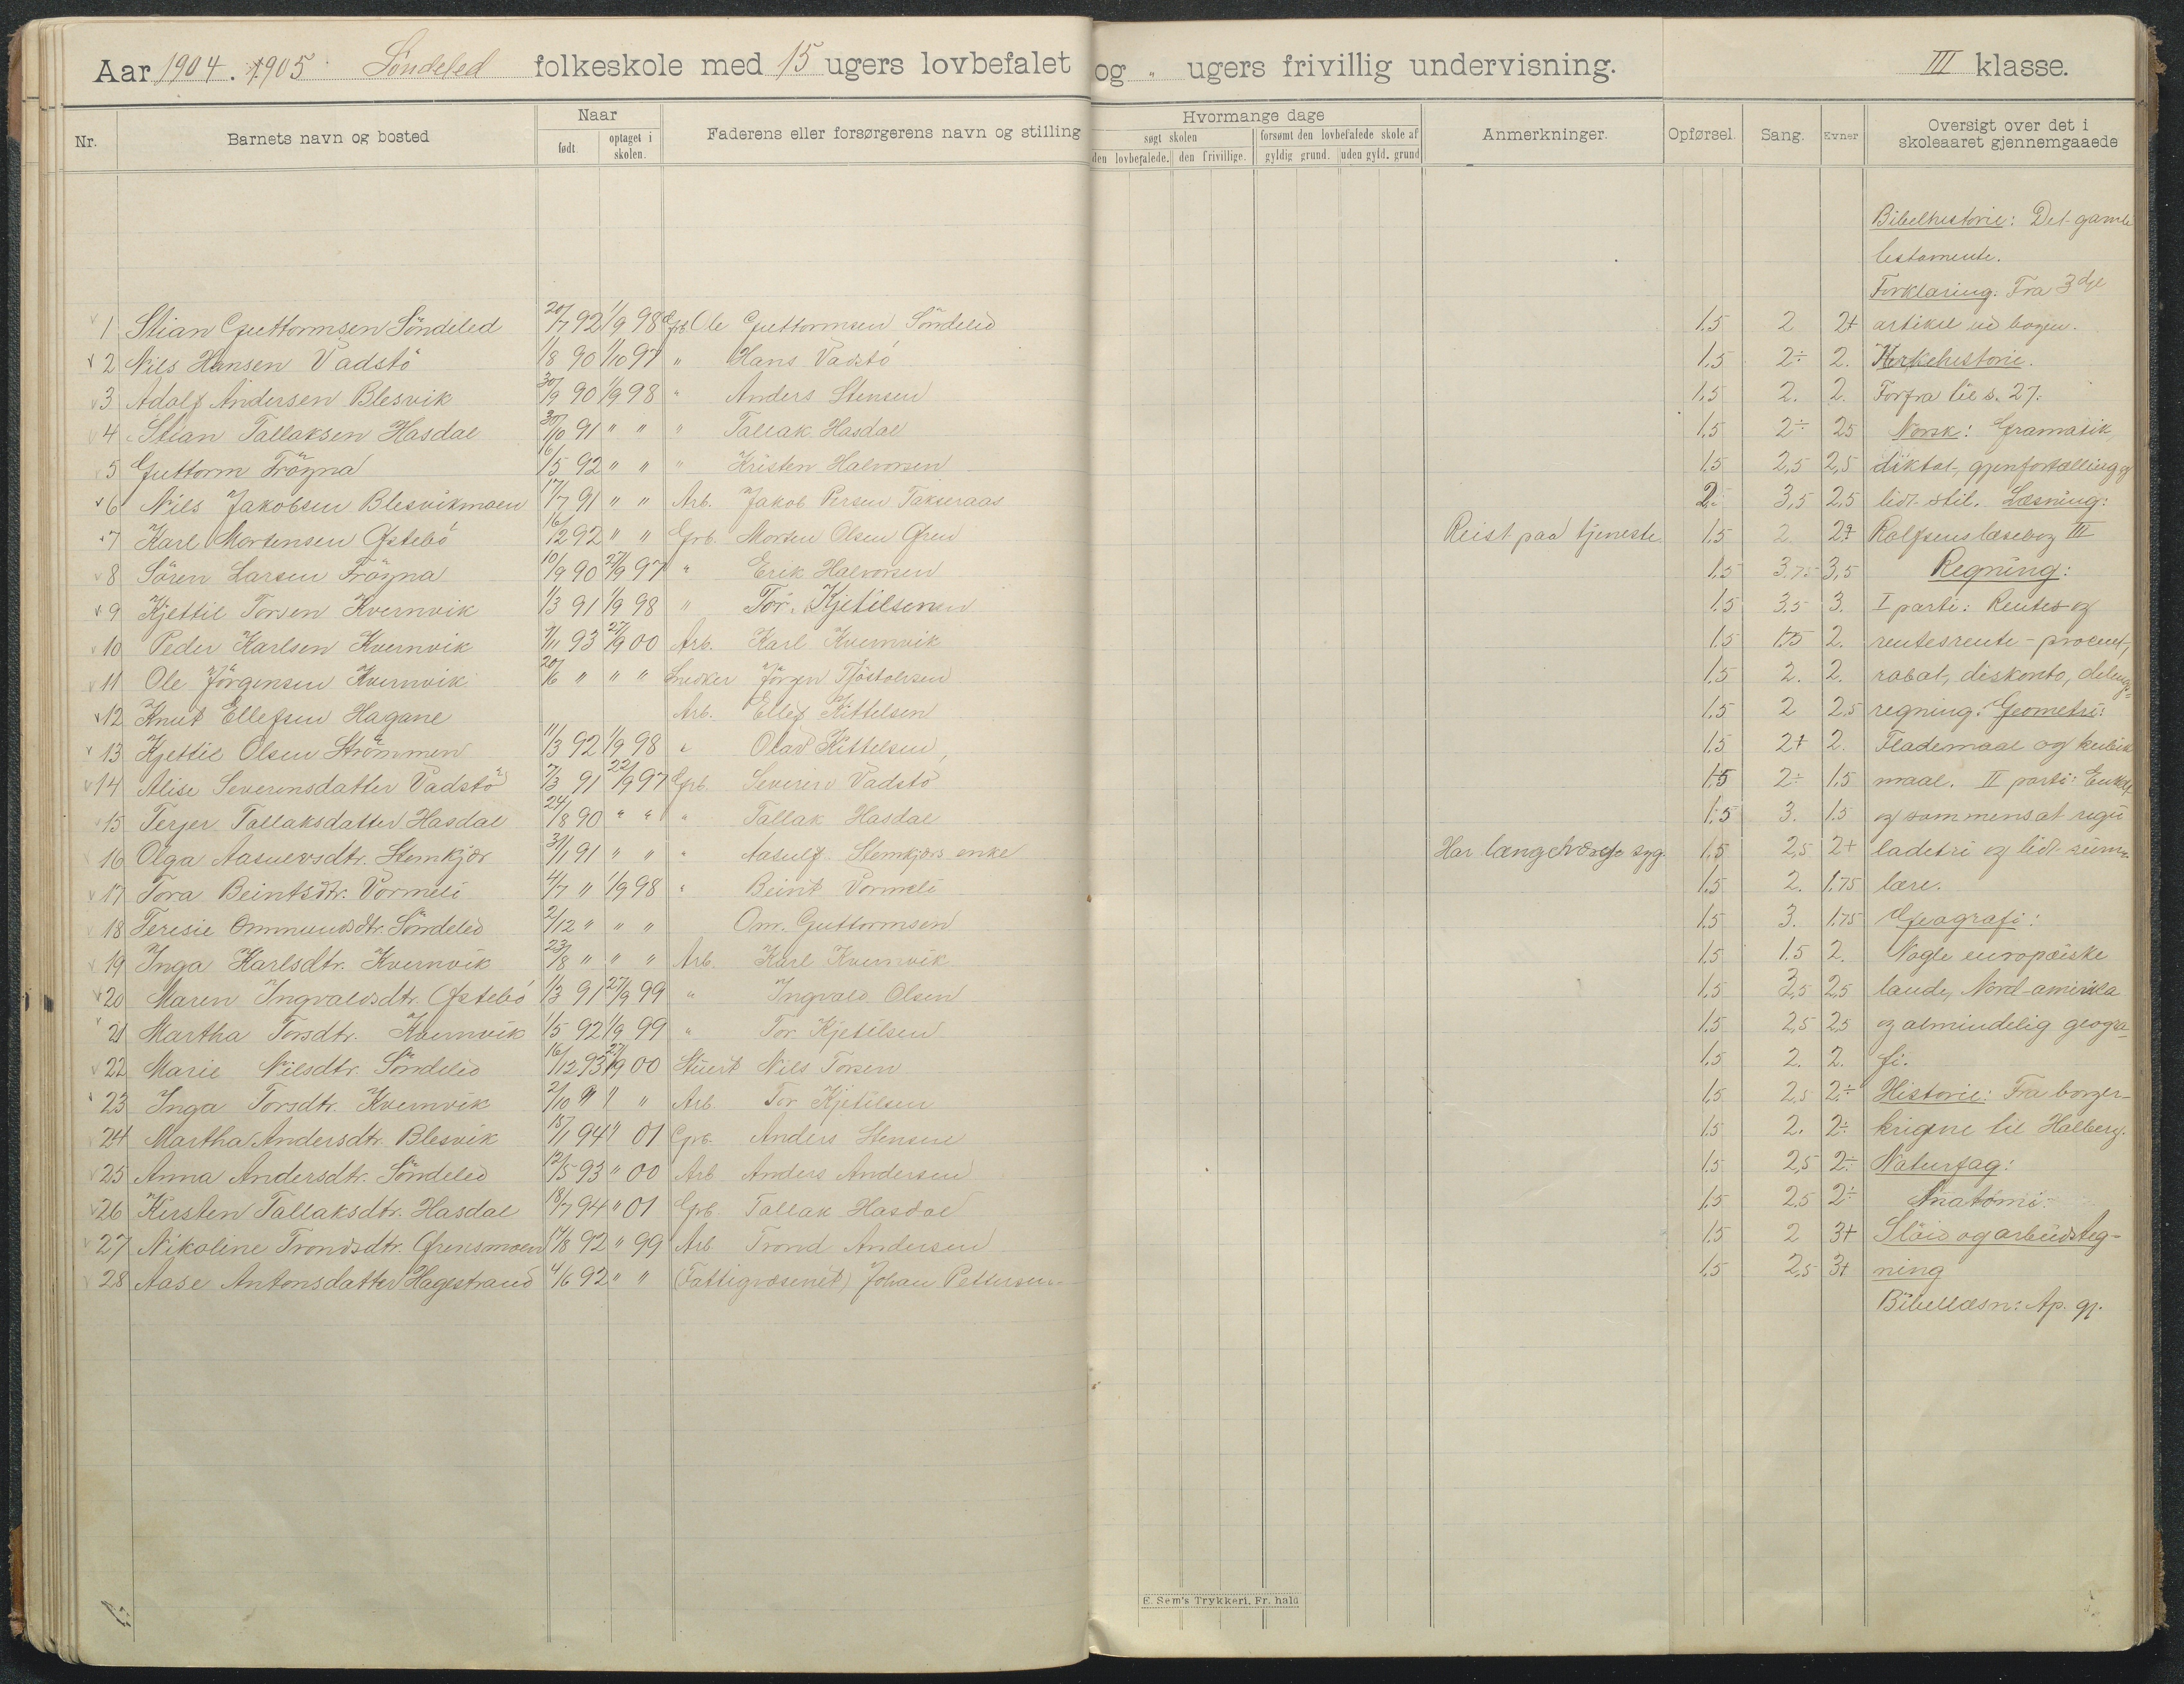 Aar 1904. 1905 Söndeled folkeskole med 15 ugers lovbefalet og " ugers frivillig undervisning. III klasse.
Nr. Barnets navn og bosted Naar født optaget i skolen. Faderens eller forsørgerens navn og stilling Hvormange dage søgt skolen den lovbefalede. den frivillige. forsømt den lovbefalede skole af gyldig grund. uden gyld. grund Anmerkninger. Opførsel. Sang. Evner Oversigt over det i skoleaaret gjennemgaaede
Bibelhistorie: Det gamle
testamente.
Forklaring. Fra 3dje
1 Stian Guttormsen Söndeled 20/7 92 1/9 98 Grb. Ole Guttormsen Söndeled 1.5 2 2+ artikel ud bogen.
2 Nils Hansen Vadstö 1/8 90 1/10 97 " Hans Vadstö 1.5 2÷ 2. Kirkehistorie.
3 Adolf Andersen Blesvik 30/9 90 1/9 98 " Anders Stensen 1.5 2. 2. Forfra til s. 27.
4 Stian Tallaksen Hasdal 30/10 91 " " " Tallak Hasdal 1.5 2÷ 2.5 Norsk: Gramatik,
5 Guttorm Frögna 16/5 92 " " " Kristen Halvorsen 1.5 2,5 2,5 diktat, gjenfortælling og
6 Nils Jakobsen Blesvikmoen 17/7 91 " " Arb. Jakob Persen 2÷ 3,5 2,5 lidt stil. Læsning:
7 Karl Mortensen Östebö 16/12 92 " " Grb. Morten Olsen Gren Reist paa tjeneste 1.5 2. 2+ Rolfsens læsebog III
8 Sören Larsen Frögna 10/9 90 27/9 97 " Erik Halvorsen 1.5 3.75 3,5 Regning:
9 Kjettil Torsen Kvernvik 1/3 91 1/9 98 " Tor Kjetilsen 1.5 3.5 3. I parti: Rentes- og
10 Peder Karlsen Kvernvik 9/11 93 27/9 00 Arb. Karl Kvernvik 1.5 1.75 2. rentesrente - procent,
11 Ole Jörgensen Kvernvik 20/6 " " " Snedker Jörgen Tjöstolvsen 1.5 2. 2. rabat, diskonto, delings-
12 Knut Ellefsen Hagane Arb. Ellef Kittelsen 1.5 2 2.5 regning. Geometri:
13 Kjettil Olsen Strömmen 11/3 92 1/9 98 " Olav Kittelsen 1.5 2+ 2. Flademaal og kubik
14 Alise Severinsdatter Vadstö 7/3 91 22/9 97 Grb. Severin Vadstö 1.5 2÷ 1.5 maal. II parti: Enkelt
15 Terjer Tallaksdatter Hasdal 24/8 90 " " " Tallak Hasdal 1.5 3. 1.5 og sammensat regu
16 Olga Aasulvsdtr. Stemkjær 31/1 91 " " " Aasulf Stemkjærs enke Har længe været syg. 1.5 2,5 2+ ladetri og lidt rum-
17 Tora Beintsdtr. Vormeli 4/7 " 1/9 98 " Beint Vormeli 1.5 2. 1.75 lære.
18 Teresie Ommundsdtr. Söndeled 2/12 " " " Om. Guttormsen 1.5 3. 1.75 Geografi:
19 Inga Karlsdtr. Kvernvik 23/8 " " " Arb. Karl Kvernvik 1.5 1.5 2. Nogle europæiske
20 Maren Ingvaldsdtr. Östebö 1/3 91 27/9 99 " Ingvald Olsen 1.5 3,5 2,5 lande, Nord-amerika
21 Martha Torsdtr. Kvernvik 1/5 92 1/9 99 " Tor Kjetilsen 1.5 2,5 2,5 og almindelig geogra-
22 Marie Nilsdtr. Söndeled 16/12 93 27/9 00 Stuert Nils Torsen 1.5 2. 2. fi.
23 Inga Torsdtr. Kvernvik 2/10 " " " Arb. Tor Kjetilsen 1.5 2,5 2÷ Historie: Fra borger-
24 Martha Andersdtr. Blesvik 18/1 94 " 01 Grb. Anders Stensen 1.5 2. 2÷ krigene til Holberg.
25 Anna Andersdtr. Söndeled 12/5 93 " 00 Arb. Anders Andersen 1.5 2,5 2÷ Naturfag:
26 Kirsten Tallaksdtr. Hasdal 18/7 94 " 01 Grb. Tallak Hasdal 1.5 2,5 2÷ Anatomi.
27 Nikoline Trondsdtr. Grensmoen 17/8 92 " 99 Arb. Trond Andersen 1.5 2 3+ Slöid og arbeidsteg-
28 Aase Antonsdatter Hagestrand 4/6 92 " " (Fattigvæsenet) Johan Pettersen 1.5 2,5 3+ ning
Bibellæsn: Ap. gj.
E. Sem's Trykkeri, Fr. hald